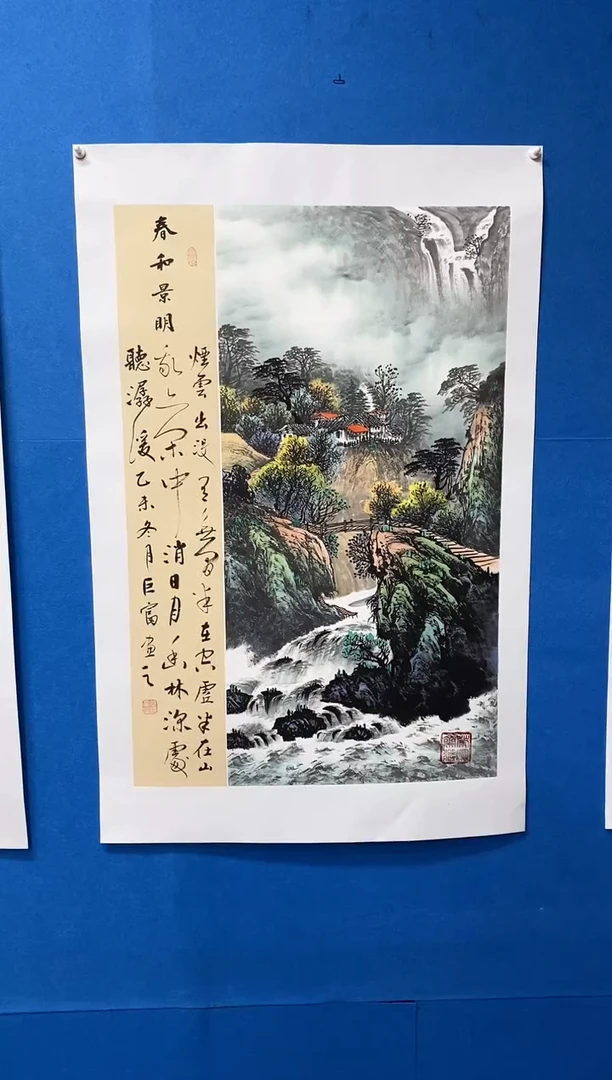 春和景明
煙雲出没有無間半在空虛半在山
我亦閒中消日月幽林深處
聽潺湲乙未冬月巨富画之